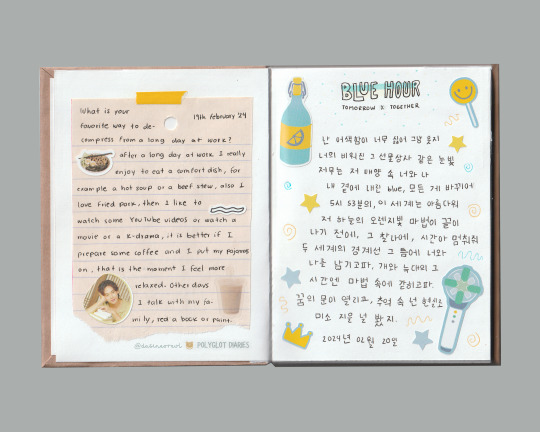 What is your
19th February '24
favorite way to de-
compress from a long day at work?
after a long day at work I really
enjoy to eat a comfort dish, for
example a hot soup or a beef stew, also I
love fried pork, then I like to
watch some YouTube videos or watch a
movie or a K-drama, it is better if I
prepare some coffee and I put my pajamas
on, that is the moment I feel more
relaxed. Other days
I talk with my fa-
mily, read a book or paint.
POLYGLOT DIARIES
BLUE HOUR
TOMORROW X TOGETHER
난 어색함이 너무 싫어 그랬 듯이
너의 비워진 그 선물상자 같은 눈빛
저무는 저 태양 속 너와 나
내 곁에 내린 blue, 모든 게 바뀌어
5시 53분의, 이 세계는 아름다워
저 하늘의 오렌지빛 마법이 끝이
나기 전에, 그 찰나에, 시간아 멈춰줘
두 세계의 경계선 그 틈에 너와
나를 남기고파. 개와 늑대의 그
시간엔 마법 속에 갇히고파.
꿈의 문이 열리고, 추억 속 넌 현실로
미소 지을 널 봤지.
2024년 02월 20일